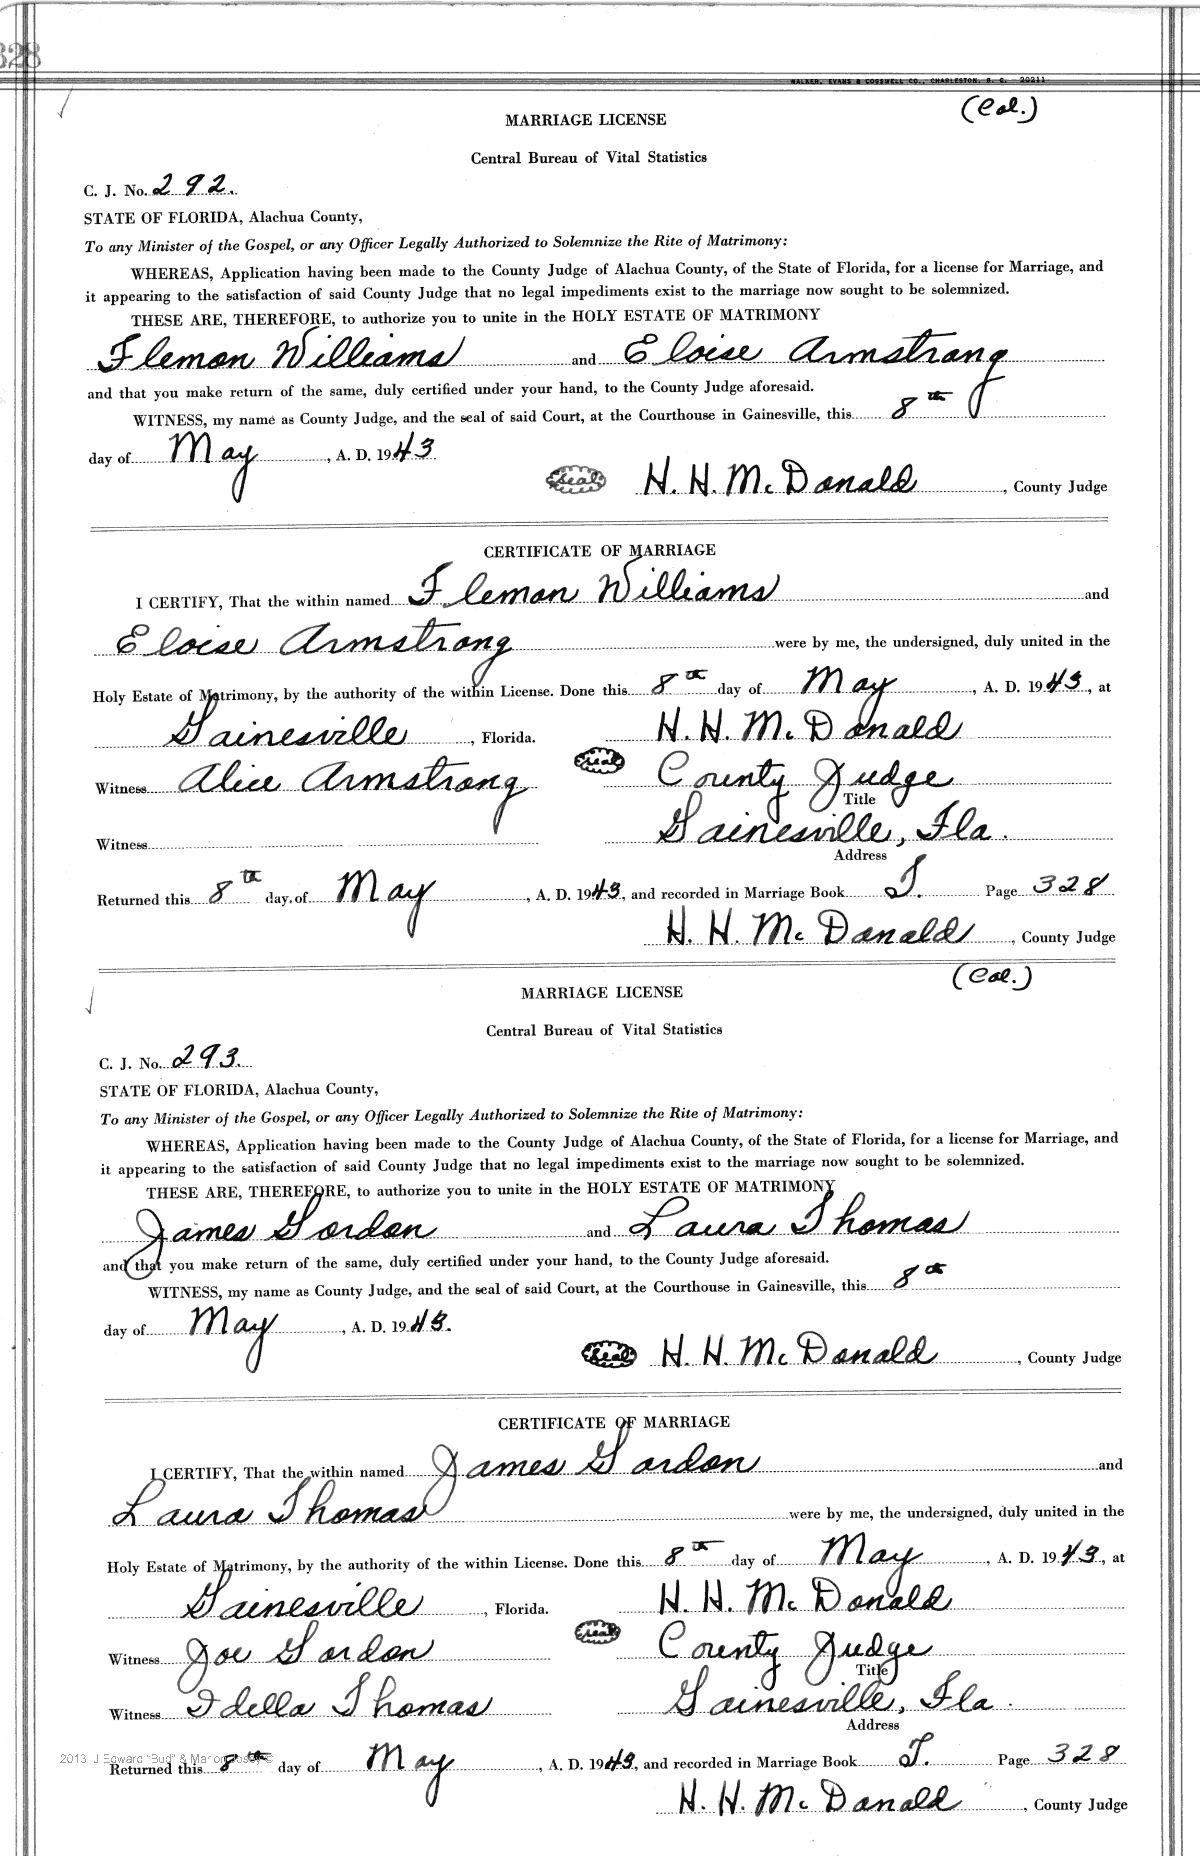 328
WALKER, EVANS & COGSWELL CO., CHARLESTON, S. C. 20211
(Col.)
MARRIAGE LICENSE
Central Bureau of Vital Statistics
C. J. No. 292.
STATE OF FLORIDA, Alachua County,
To any Minister of the Gospel, or any Officer Legally Authorized to Solemnize the Rite of Matrimony:
WHEREAS, Application having been made to the County Judge of Alachua County, of the State of Florida, for a license for Marriage, and
it appearing to the satisfaction of said County Judge that no legal impediments exist to the marriage now sought to be solemnized.
THESE ARE, THEREFORE, to authorize you to unite in the HOLY ESTATE OF MATRIMONY
Flemon Williams and Eloise Armstrong
and that you make return of the same, duly certified under your hand, to the County Judge aforesaid.
WITNESS, my name as County Judge, and the seal of said Court, at the Courthouse in Gainesville, this 8th
day of May, A. D. 1943
Seal H. H. McDonald, County Judge
CERTIFICATE OF MARRIAGE
I CERTIFY, That the within named Flemon Williams and
Eloise Armstrong were by me, the undersigned, duly united in the
Holy Estate of Matrimony, by the authority of the within License. Done this 8th day of May, A. D. 1943, at
Gainesville, Florida. H. H. McDonald
Seal
Witness Alice Armstrong County Judge
Title
Witness Gainesville, Fla.
Address
Returned this 8th day of May, A. D. 1943, and recorded in Marriage Book T. Page 328
H. H. McDonald, County Judge
(Col.)
MARRIAGE LICENSE
Central Bureau of Vital Statistics
C. J. No. 293.
STATE OF FLORIDA, Alachua County,
To any Minister of the Gospel, or any Officer Legally Authorized to Solemnize the Rite of Matrimony:
WHEREAS, Application having been made to the County Judge of Alachua County, of the State of Florida, for a license for Marriage, and
it appearing to the satisfaction of said County Judge that no legal impediments exist to the marriage now sought to be solemnized.
THESE ARE, THEREFORE, to authorize you to unite in the HOLY ESTATE OF MATRIMONY
James Gordon and Laura Thomas
and that you make return of the same, duly certified under your hand, to the County Judge aforesaid.
WITNESS, my name as County Judge, and the seal of said Court, at the Courthouse in Gainesville, this 8th
day of May, A. D. 1943.
Seal H. H. McDonald, County Judge
CERTIFICATE OF MARRIAGE
I CERTIFY, That the within named James Gordon and
Laura Thomas were by me, the undersigned, duly united in the
Holy Estate of Matrimony, by the authority of the within License. Done this 8th day of May, A. D. 1943, at
Gainesville, Florida. H. H. McDonald
Seal
Witness Joe Gordon County Judge
Title
Witness Idella Thomas Gainesville, Fla.
Address
2013 J Edward "Bud" & Marion
Returned this 8th day of May, A. D. 1943, and recorded in Marriage Book T. Page 328
H. H. McDonald, County Judge